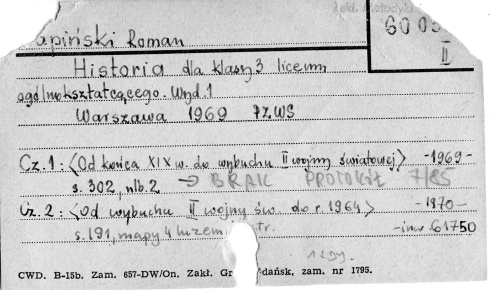 apiński Roman
60 0
II
Historia dla klasy 3 liceum
ogólnokształcącego. Wyd 1
Warszawa 1969 PZWS
Cz. 1: <Od końca XIX w. do wybuchu II wojny światowej> -1969-
s. 302, nlb. 2 → BRAK PROTOKÓŁ 7/85
Cz. 2: <Od wybuchu II wojny św. do r 1964> -1970-
s. 191, mapy 4 luzem, tr. -inw. 61750
CWD. B-15b. Zam. 657-DW/On. Zakł. Gr dańsk, zam. nr 1795.